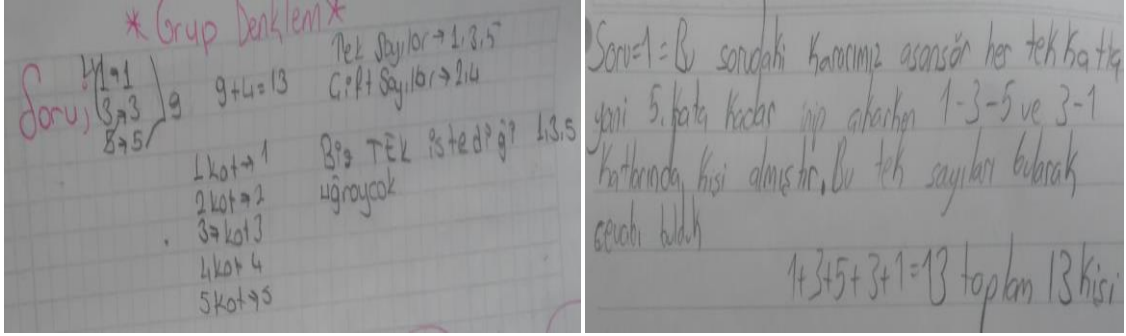 * Grup Denklem *
Soru 1
1→1
3→3
5→5
9
9+4=13
Tek Sayılar→1,3,5
Çift Sayılar→2,4
Biz TEK istediği 1,3,5
uğraycak
1kat→1
2kat→2
3→kat3
4kat 4
5kat→5
Soru=1= Bu sorudaki kararımız asansör her tek katta
yani 5. kata kadar inip çıkarken 1-3-5 ve 3-1
katlarında kişi almıştır, Bu tek sayıları bularak
cevabı bulduk
1+3+5+3+1=13 toplam 13 kişi